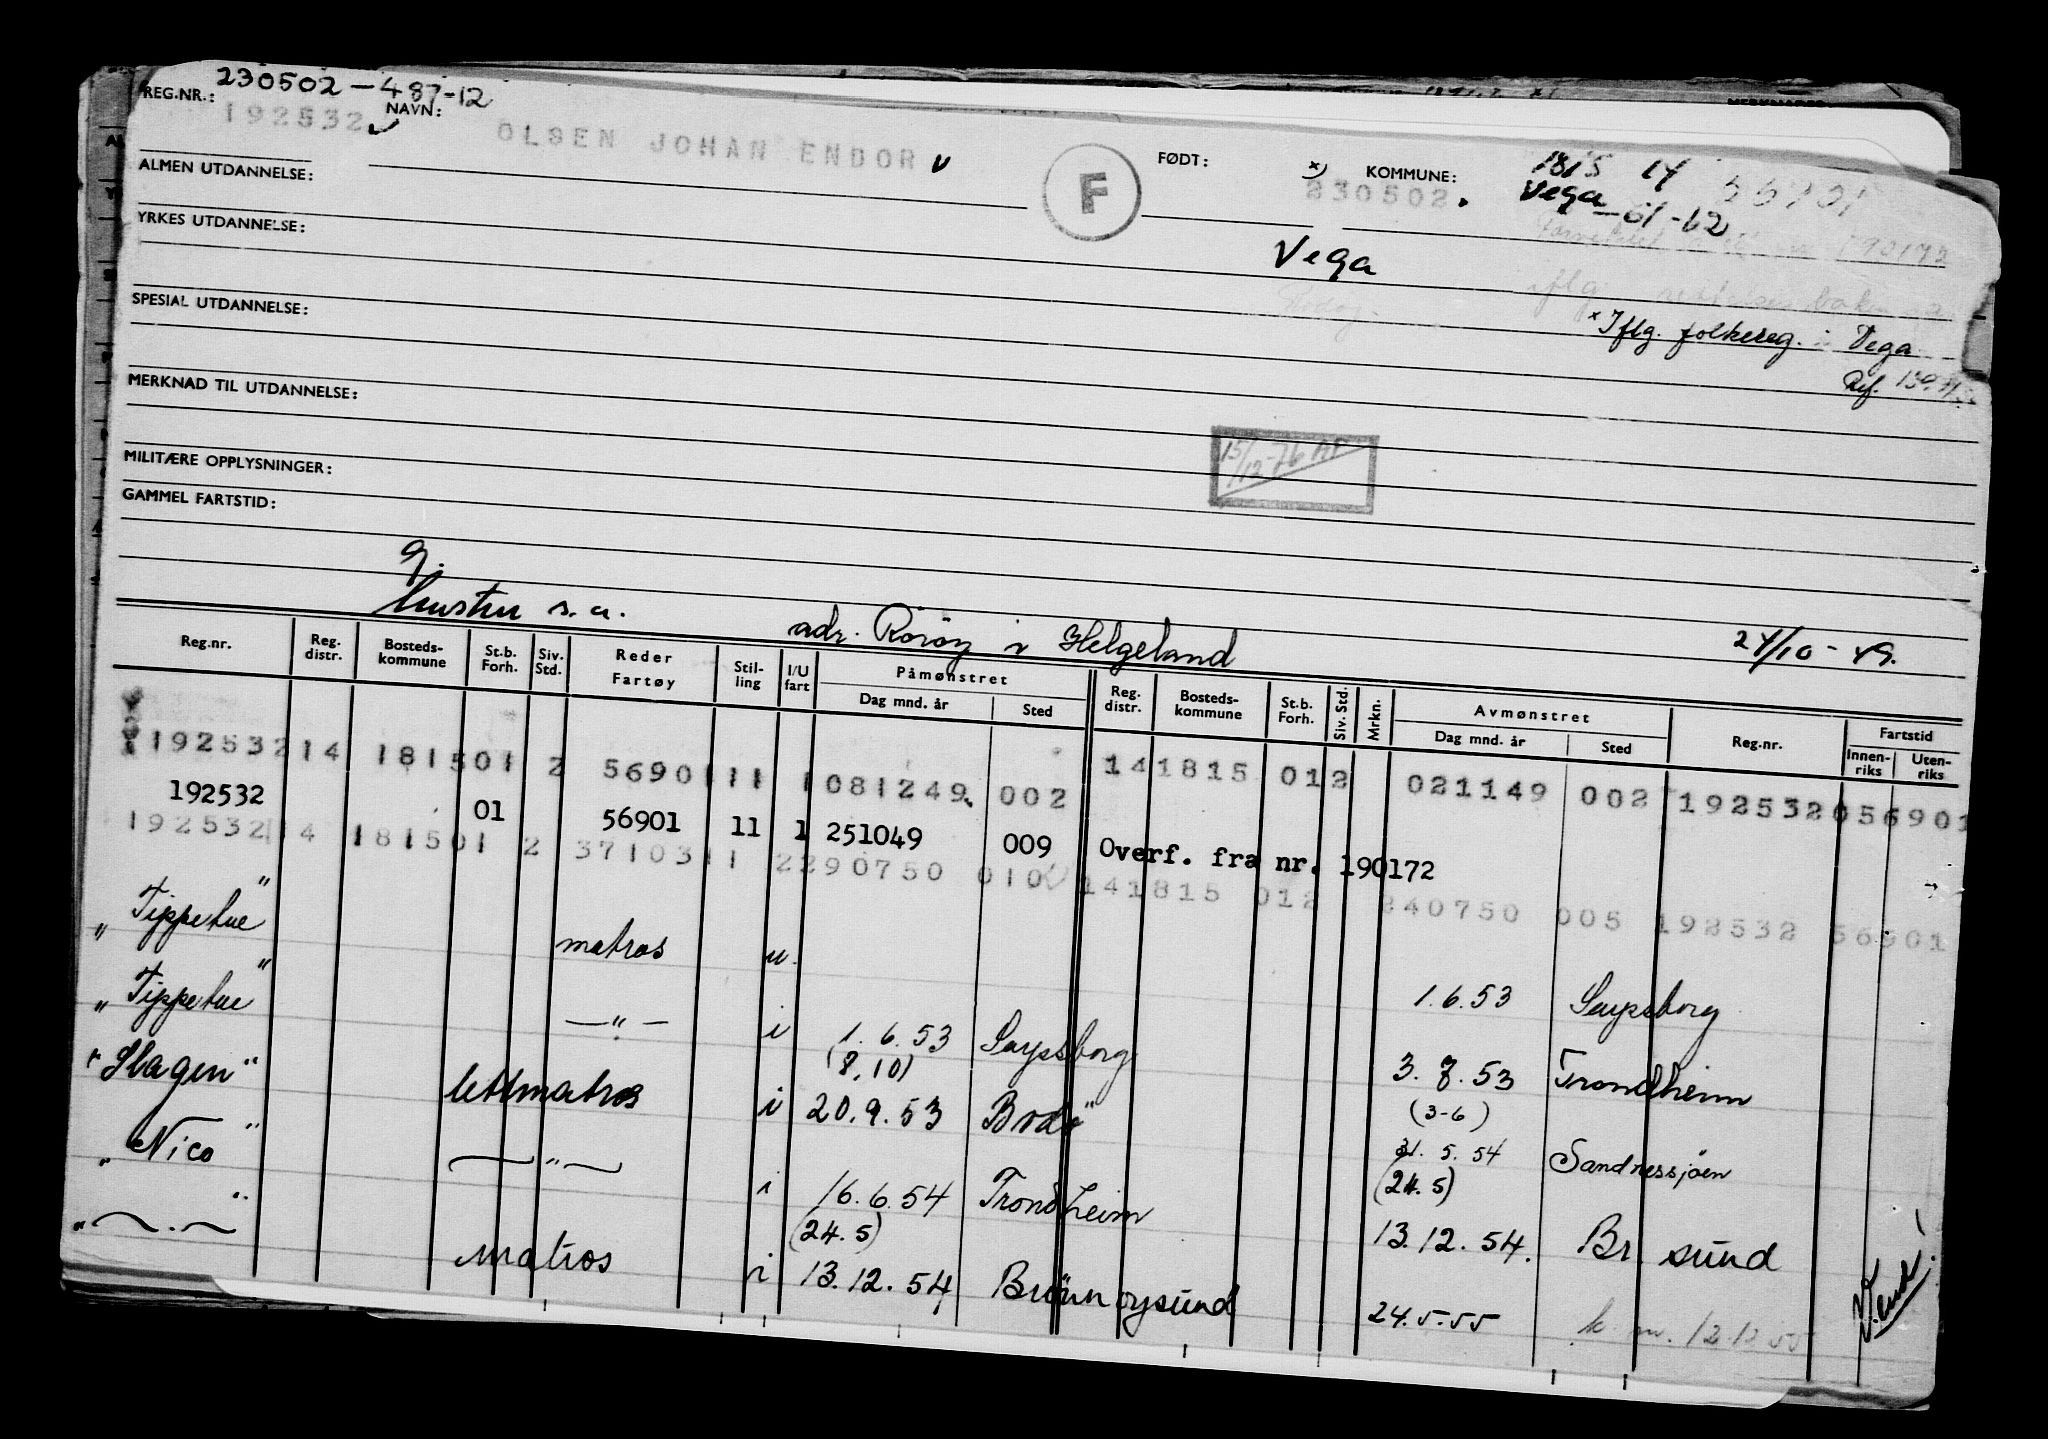 REG.NR.: 230502-487-12
192532 NAVN: OLSEN JOHAN ENDOR F FØDT: x) 230502. KOMMUNE: 1815 14 56901
Vega -61-62
ALMEN UTDANNELSE:
YRKES UTDANNELSE: Vega
SPESIAL UTDANNELSE: x Iflg. folkereg. i Vega
Ref.
MERKNAD TIL UTDANNELSE:
15/12-76
MILITÆRE OPPLYSNINGER:
GAMMEL FARTSTID:
g.
hustru s.a. adr. Rørøy i Helgeland 24/10-49.
Reg.nr. Reg. distr. Bosteds-kommune St.b. Forh. Siv. Std. Reder Fartøy Stil-ling I/U fart Påmønstret Dag mnd. år Sted Reg. distr. Bosteds-kommune St.b. Forh. Siv. Std. Mrkn. Avmønstret Dag mnd. år Sted Reg.nr. Fartstid Innen-riks Uten-riks
192532 14 1815 01 2 56901 11 1 081249 002 14 1815 01 2 021149 002 192532 056901
192532 01 56901 11 1 251049 009 Overf. fra nr. 190172
192532 14 1815 01 2 37103 11 2 290750 010 14 1815 01 2 240750 005 192532 56901
"Tippetue" matros u. 1.6.53 Sarpsborg
"Tippetue" —"— i 1.6.53 Sarpsborg 3.7.53 Trondheim
(8.10) (3-6)
"Hagen" lettmatros i 20.9.53 Bodö 21.5.54 Sandnessjöen
(24.5)
"Nico" —"— i 16.6.54 Trondheim 13.12.54. Br. sund
(24.5)
"—.—" matros i 13.12.54 Brönnöysund 24.5.55 k. m. 12.12.55